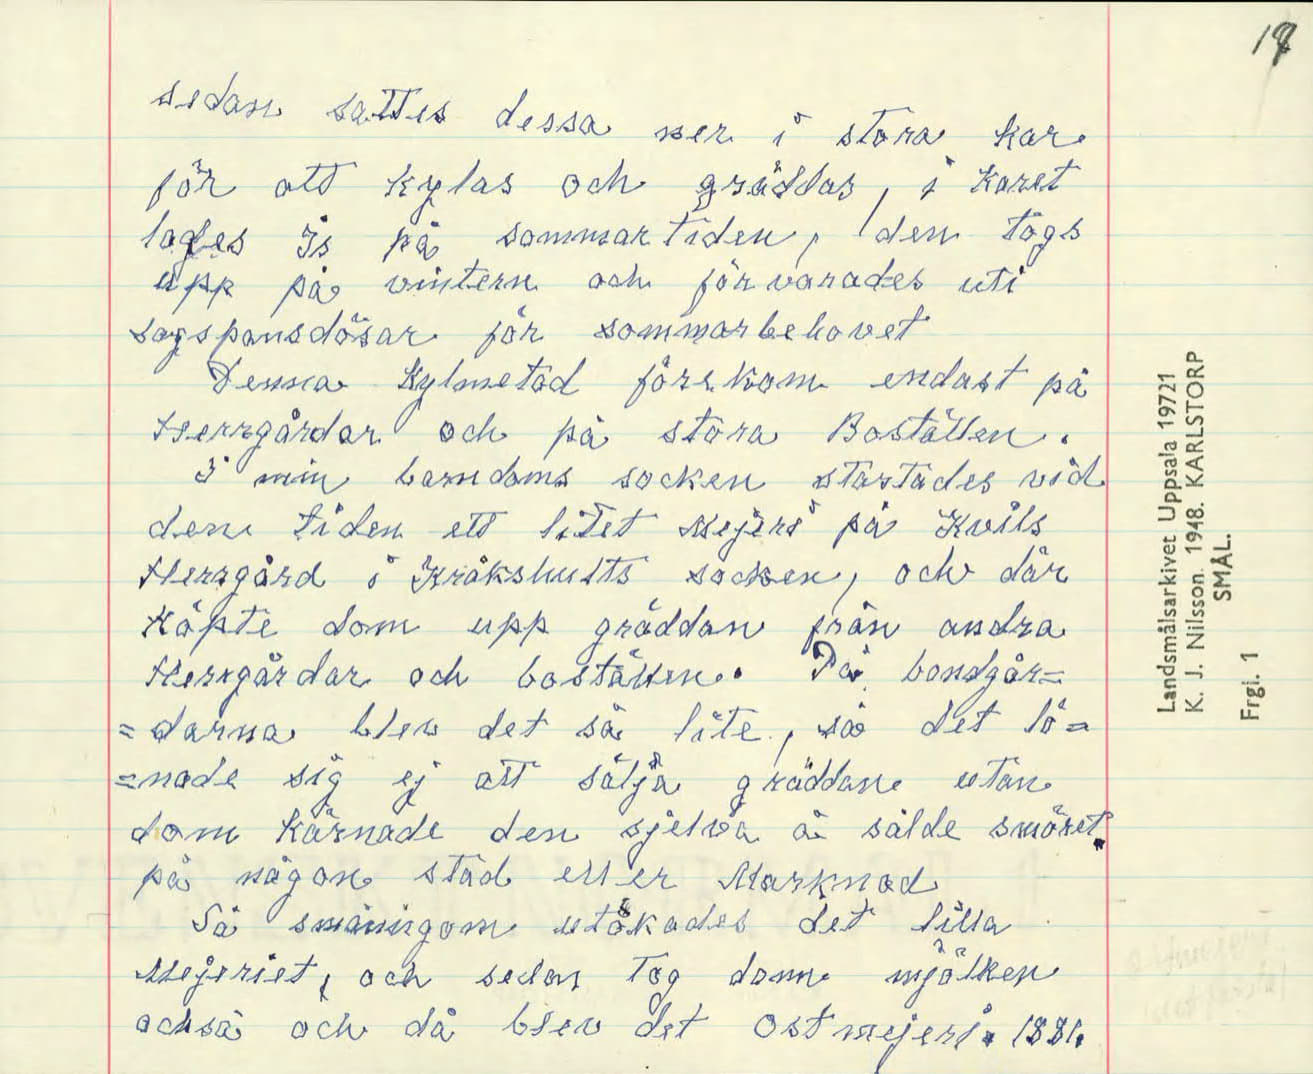 18
sedan sattes dessa ner i stora kar
för att kylas och gräddas, i karet
lades Is på sommartiden, den togs
upp på vintern och förvarades uti
sagspansdösar för sommarbehovet
Denna Kylmetod förekom endast på
Herrgårdar och på stora Boställen.
I min barndoms socken startades vid
den tiden ett litet Mejeri på Kvils
Herrgård i Kråkshults socken, och där
köpte dom upp gräddan från andra
Herrgårdar och boställen. På bondgår=
=darna blev det så lite, så det lö=
=nade sig ej att sälja gräddan utan
dom kärnade den sjelva å sålde smöret
på någon stad eller Marknad
Så småningom utökades det lilla
Mejeriet, och sedan tog dom mjölken
också och då blev det Ostmejeri. 1881.
Landsmålsarkivet Uppsala 19721
K. J. Nilsson. 1948. KARLSTORP
SMÅL.
Frgl. 1